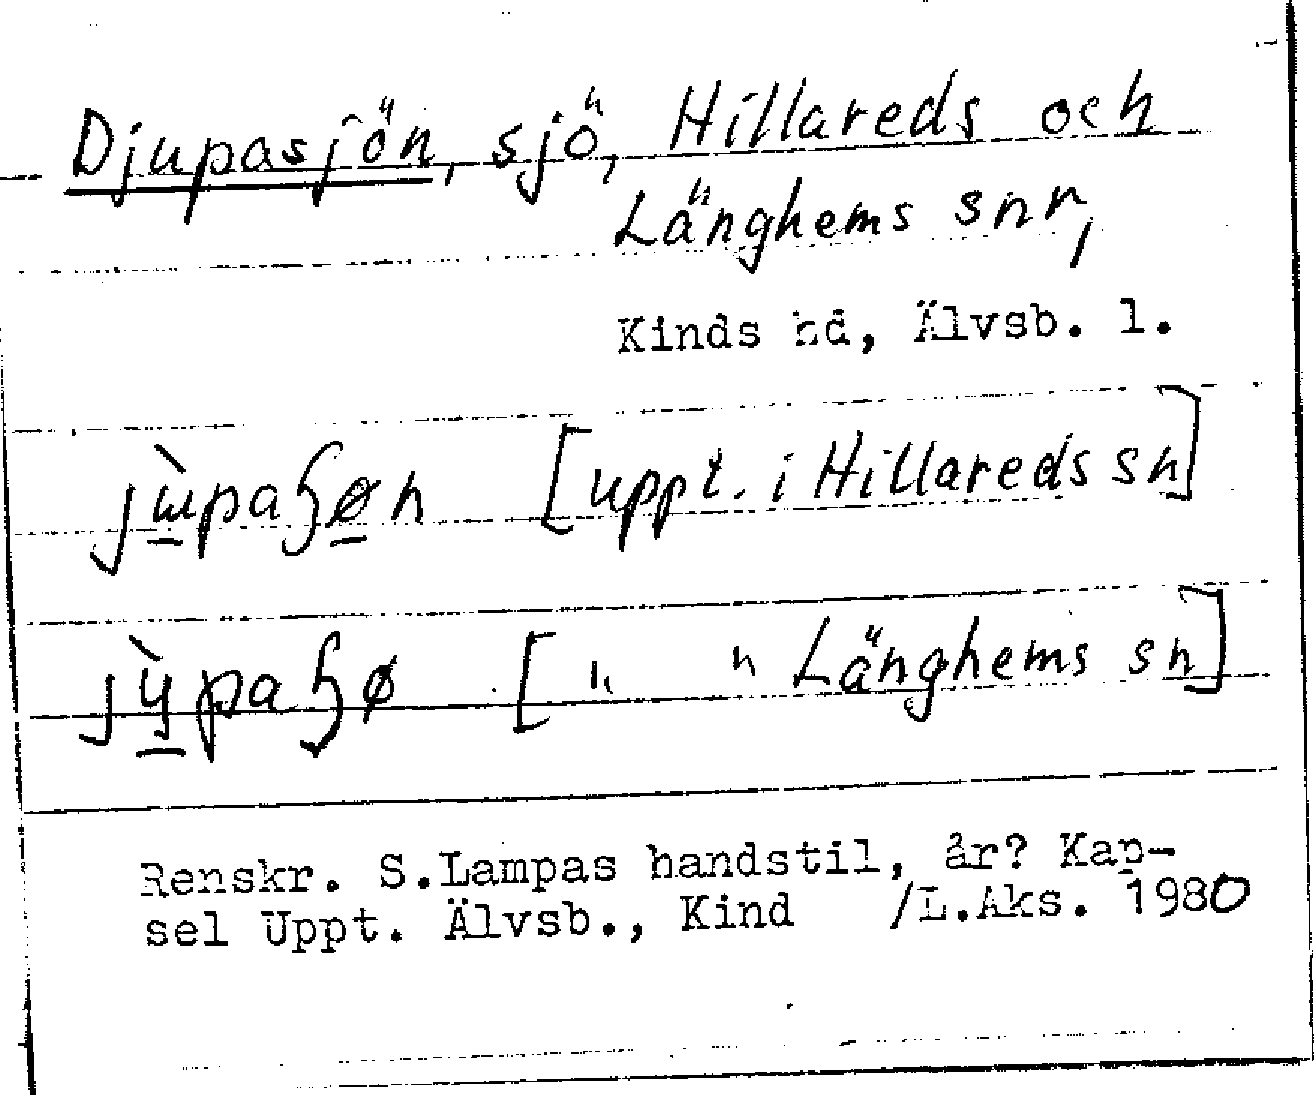 Djupasjön, sjö, Hillareds och
Länghems snr,
Kinds hd, Älvsb. l.
[uppt. i Hillareds sn]
[ " " Länghems sn]
Renskr. S.Lampas handstil, år? Kap-
sel Uppt. Älvsb., Kind /L.Aks. 1980